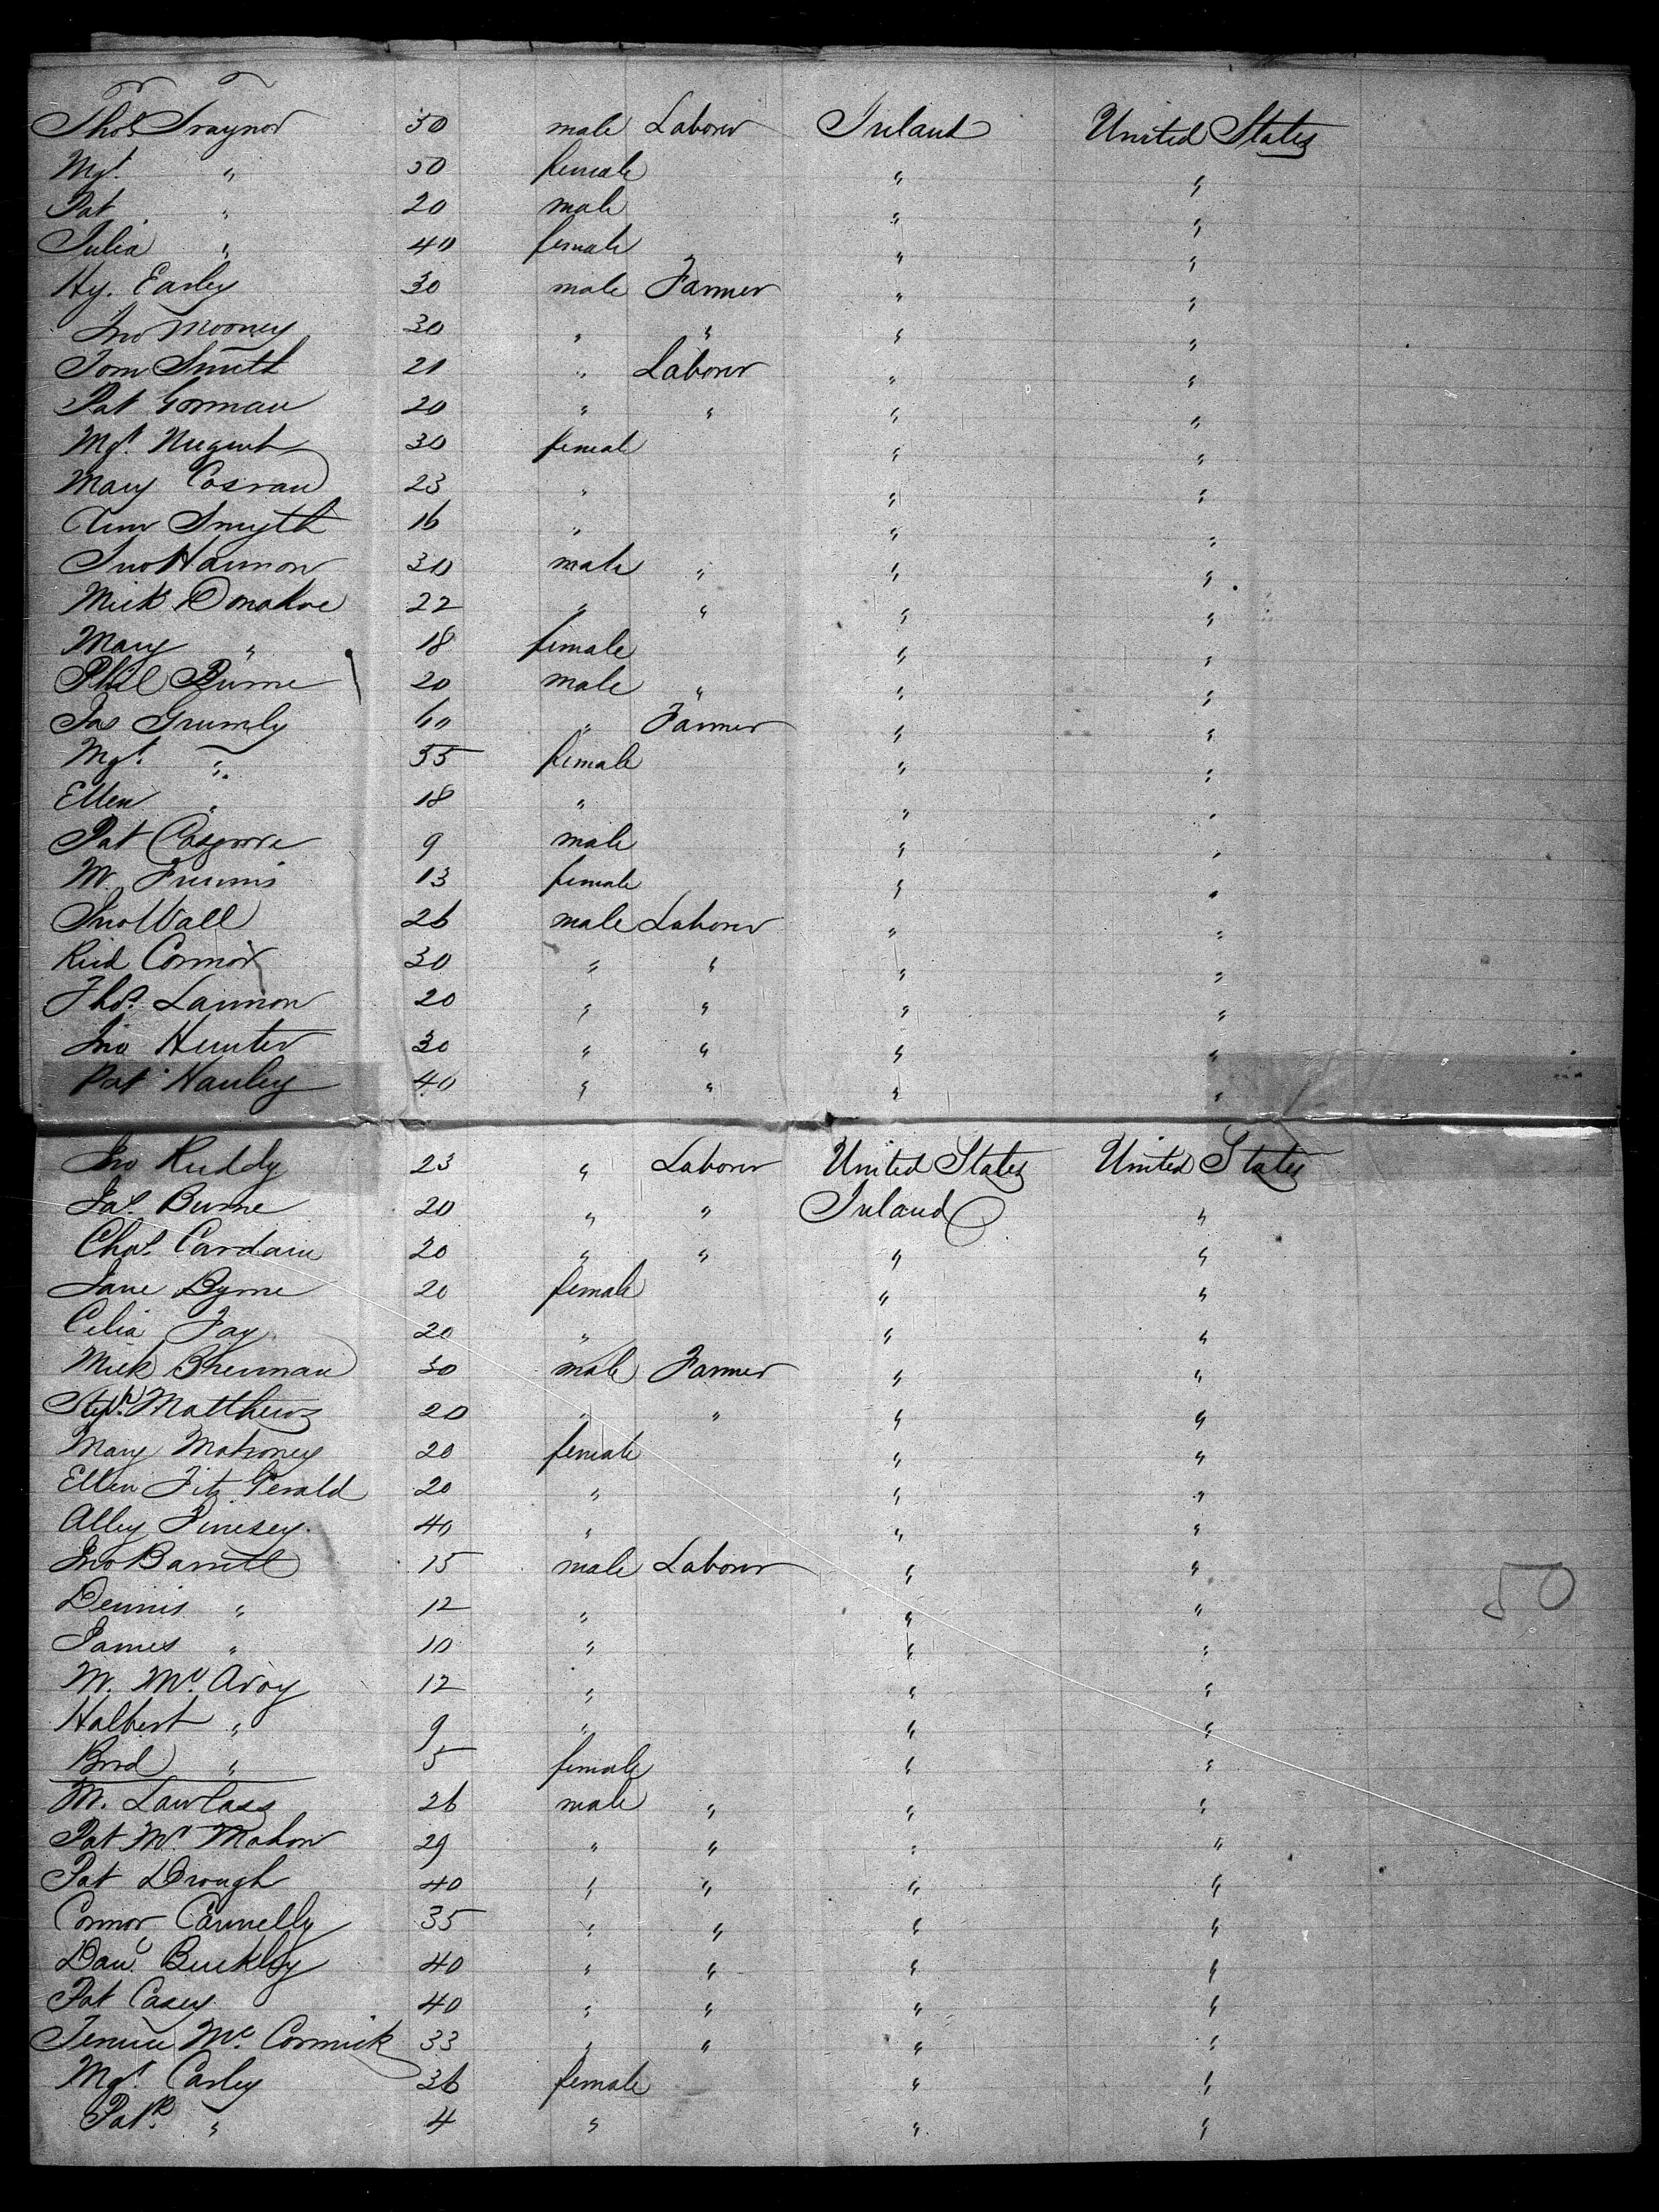 Thos. Traynor 50 male Laborer Ireland United States
Mgt. " 50 female " "
Pat " 20 male " "
Julia " 40 female " "
Hy. Earley 30 male Farmer " "
Jno Mooney 30 " " " "
Tom Smith 21 " Laborer " "
Pat Gorman 20 " " " "
Mgt. Nugent 30 female " "
Mary 23 " " "
Ann Smyth 16 " " "
Jno Hannon 30 male " " "
Mick Donahoe 22 " " " "
Mary " 18 female " "
Phil Burne 20 male " " "
Jas Grumly 60 " Farmer " "
Mgt. " 55 female " "
Ellen " 18 " " "
Pat Cosgrove 9 male " "
M. 13 female " "
Jno Wall 26 male Laborer " "
Ricd Connor 30 " " " "
Thos. Lannon 20 " " " "
Jno Hunter 30 " " " "
Pat Hanley 40 " " " "
Jno Ruddy 23 " Laborer United States United States
Jas. Burne 20 " " Ireland "
Chas. 20 " " " "
Jane Byrne 20 female " "
Celia Fay 20 " " "
Mick Brennan 30 male Farmer " "
Steph. Matthews 20 " " " "
Mary Mahoney 20 female " "
Ellen Fitz Gerald 20 " " "
Alley 40 " " "
Jno Barrett 15 male Laborer " "
Dennis " 12 " " "
James " 10 " " "
50
M. Mc. Avoy 12 " " "
Halbert " 9 " " "
Brid " 5 female " "
M. Lawlass 26 male " " "
Pat Mc. Mahon 29 " " " "
Pat Drough 40 " " " "
Connor Connelly 35 " " " "
Danl. Buckley 40 " " " "
Pat Casey 40 " " " "
Terrence Mc. Cormick 33 " " " "
Mgt. Carley 36 female " "
Patk. " 4 " " "